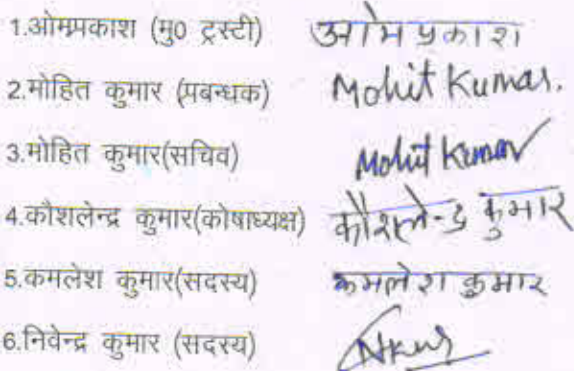 1.ओमप्रकाश (मु0 ट्रस्टी) ओम प्रकाश
2.मोहित कुमार (प्रबन्धक) Mohit Kumar.
3.मोहित कुमार(सचिव) Mohit Kumar
4.कौशलेन्द्र कुमार(कोषाध्यक्ष) कौशलेन्द्र कुमार
5.कमलेश कुमार(सदस्य) कमलेश कुमार
6.निवेन्द्र कुमार (सदस्य)